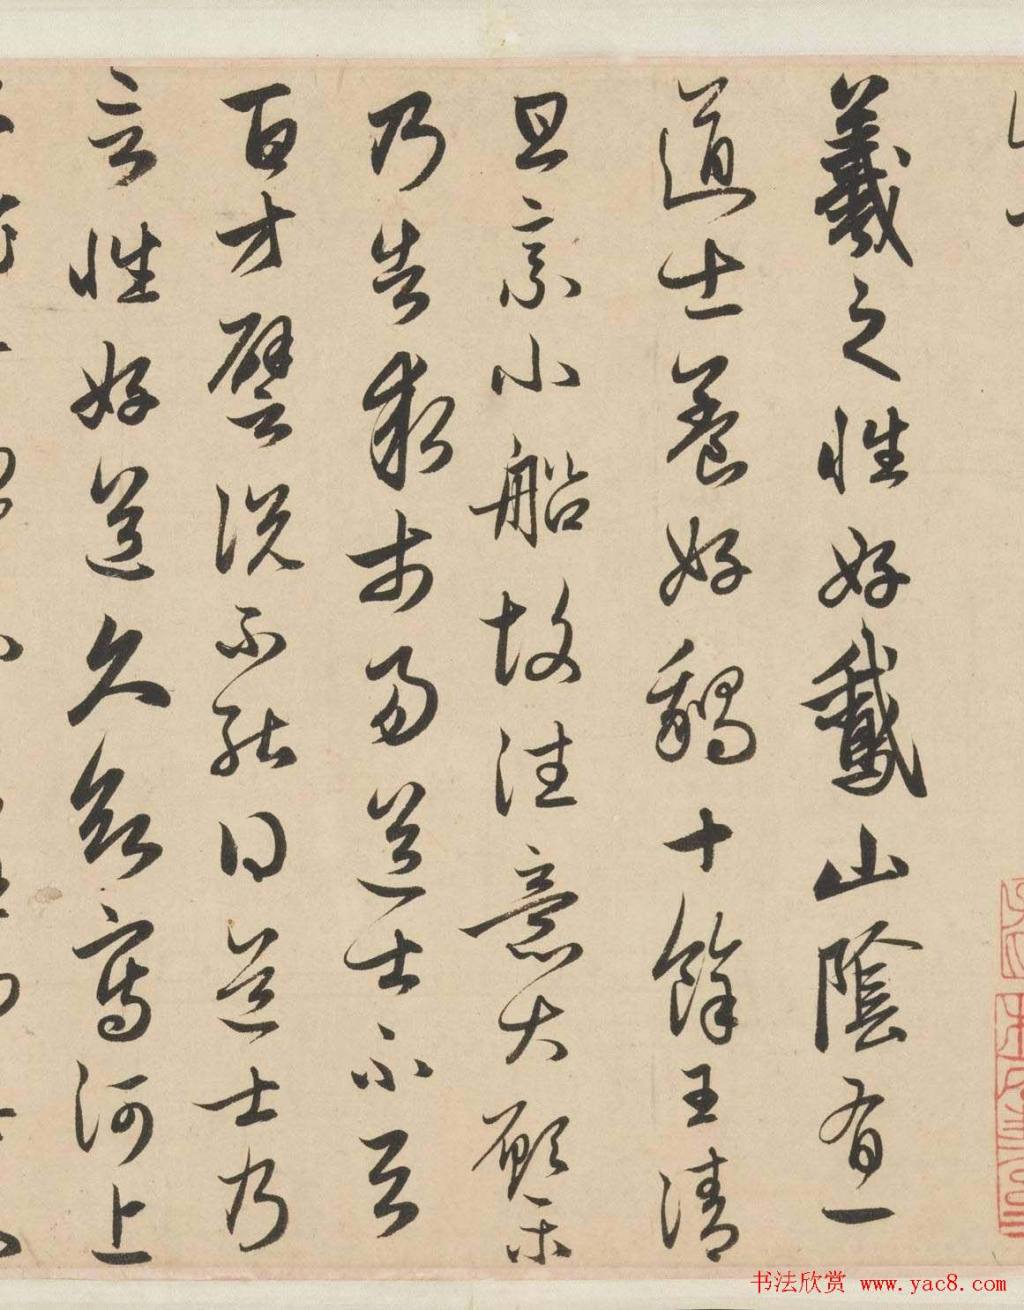 羲之性好鵞山陰有一
道士養好鵝十餘王清
旦乗小船故往意大願樂
乃告求市易道士不与
百方譬説不能道士乃
言性好道久欲寫河上
书法欣赏 www.yac8.com